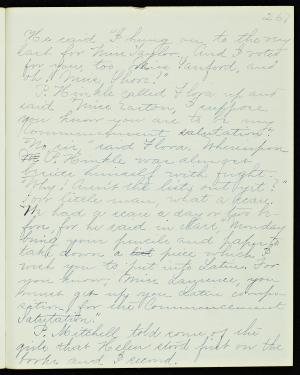 261
He said "I hung on to the very
last for Miss Taylor. And I voted
for you, too, Miss Sanford, and
oh! Miss Shore!"
P. Hinkle called Flora up and
said "Miss Easton, I suppose
you know you are to be my
Commencement salutation."
"No sir," said Flora. Whereupon
P. Hinkle was almost
beside himself with fright.
"Why! Aren't the lists out yet?"
Poor little man, what a scare.
He had a scare a day or two be-
fore, for he said in class, "Monday
bring your pencils and paper to
take down a piece which I
wish you to put into Latin. For
you know, Miss Laurence, you
must get up your Latin compo-
sition for the Commencement
Salutation."
P. Mitchell told some of the
girls that Helen stood first on the
books and I second.